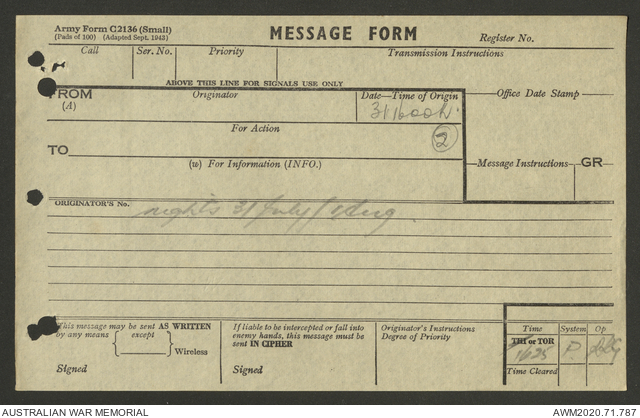 Army Form C2136 (Small)
(Pads of 100) (Adapted Sept. 1943)
MESSAGE FORM
Register No.
Call Ser. No. Priority Transmission Instructions
ABOVE THIS LINE FOR SIGNALS USE ONLY
FROM Originator Date—Time of Origin Office Date Stamp
(A)
311600h
For Action
2
TO
(w) For Information (INFO.)
Message Instructions GR
ORIGINATOR'S No.
nights 31 July/1 Aug.
This message may be sent AS WRITTEN
by any means { except } Wireless
Signed
If liable to be intercepted or fall into
enemy hands, this message must be
sent IN CIPHER
Signed
Originator's Instructions
Degree of Priority
Time System Op
THI or TOR
1625 P.
Time Cleared
AUSTRALIAN WAR MEMORIAL
AWM2020.71.787